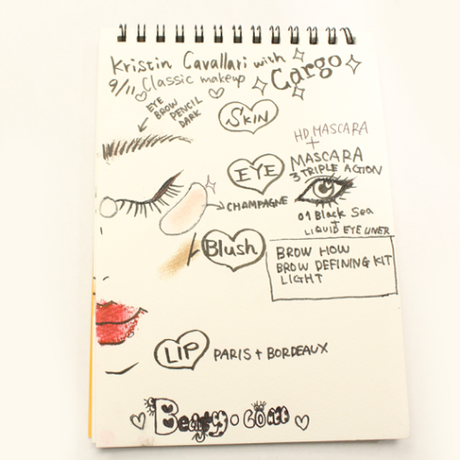 Kristin Cavallari with
Cargo
9/11 Classic makeup
EYE
BROW PENCIL
DARK
SKIN
HD MASCARA
+
MASCARA
3 TRIPLE ACTION
EYE
CHAMPAGNE
01 Black Sea
+
LIQUID EYE LINER
Blush
BROW HOW
BROW DEFINING KIT
LIGHT
LIP
PARIS + BORDEAUX